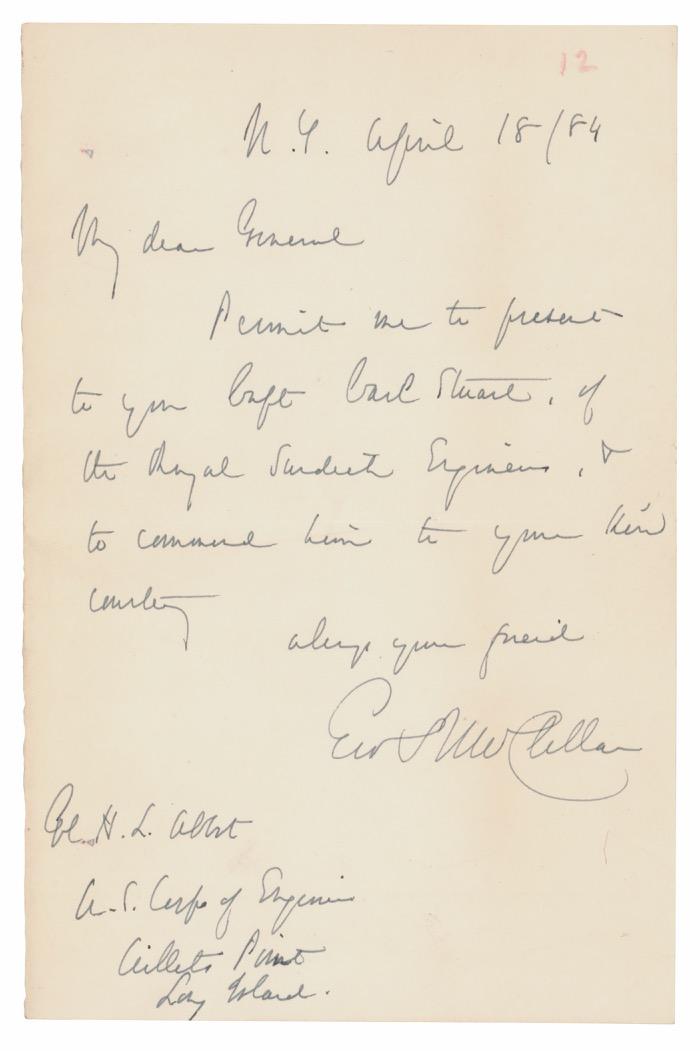 12
N.Y. April 18/84
My dear General
Permit me to present
to you Capt Carl Stuart, of
the Royal Swedish Engineers, &
to commend him to your kind
courtesy
always your friend
Geo B McClellan
Col H. L. Abbot
U.S. Corps of Engineers
Willets Point
Long Island.